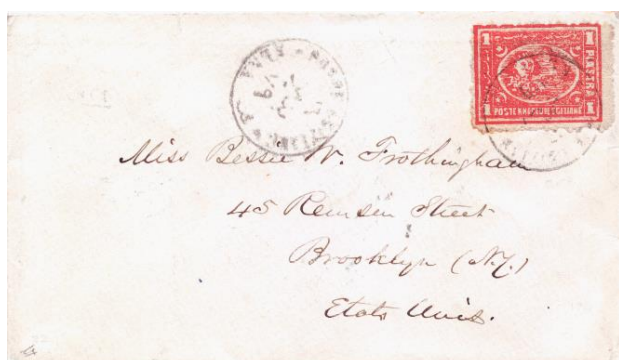 1 1
PIASTRA
POSTE KHEDEUIE EGIZIANE
1 1
Miss Bessie W. Frothingham
45 Remsen Street
Brooklyn (N.Y.)
Etats Unis.